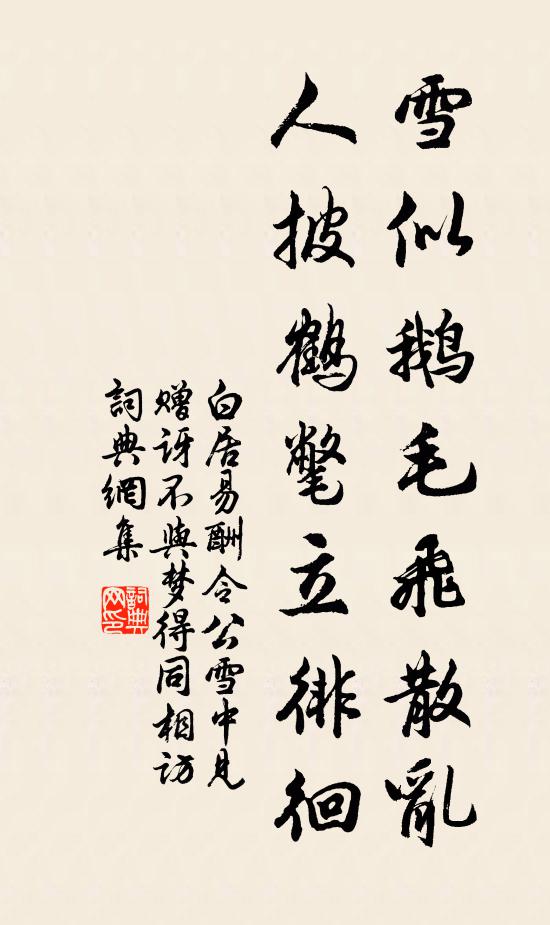 雪似鹅毛飛散亂
人披鶴氅立徘徊
白居易酬令公雪中見
贈訝不與梦得同相访
詞典網集
詞典网印